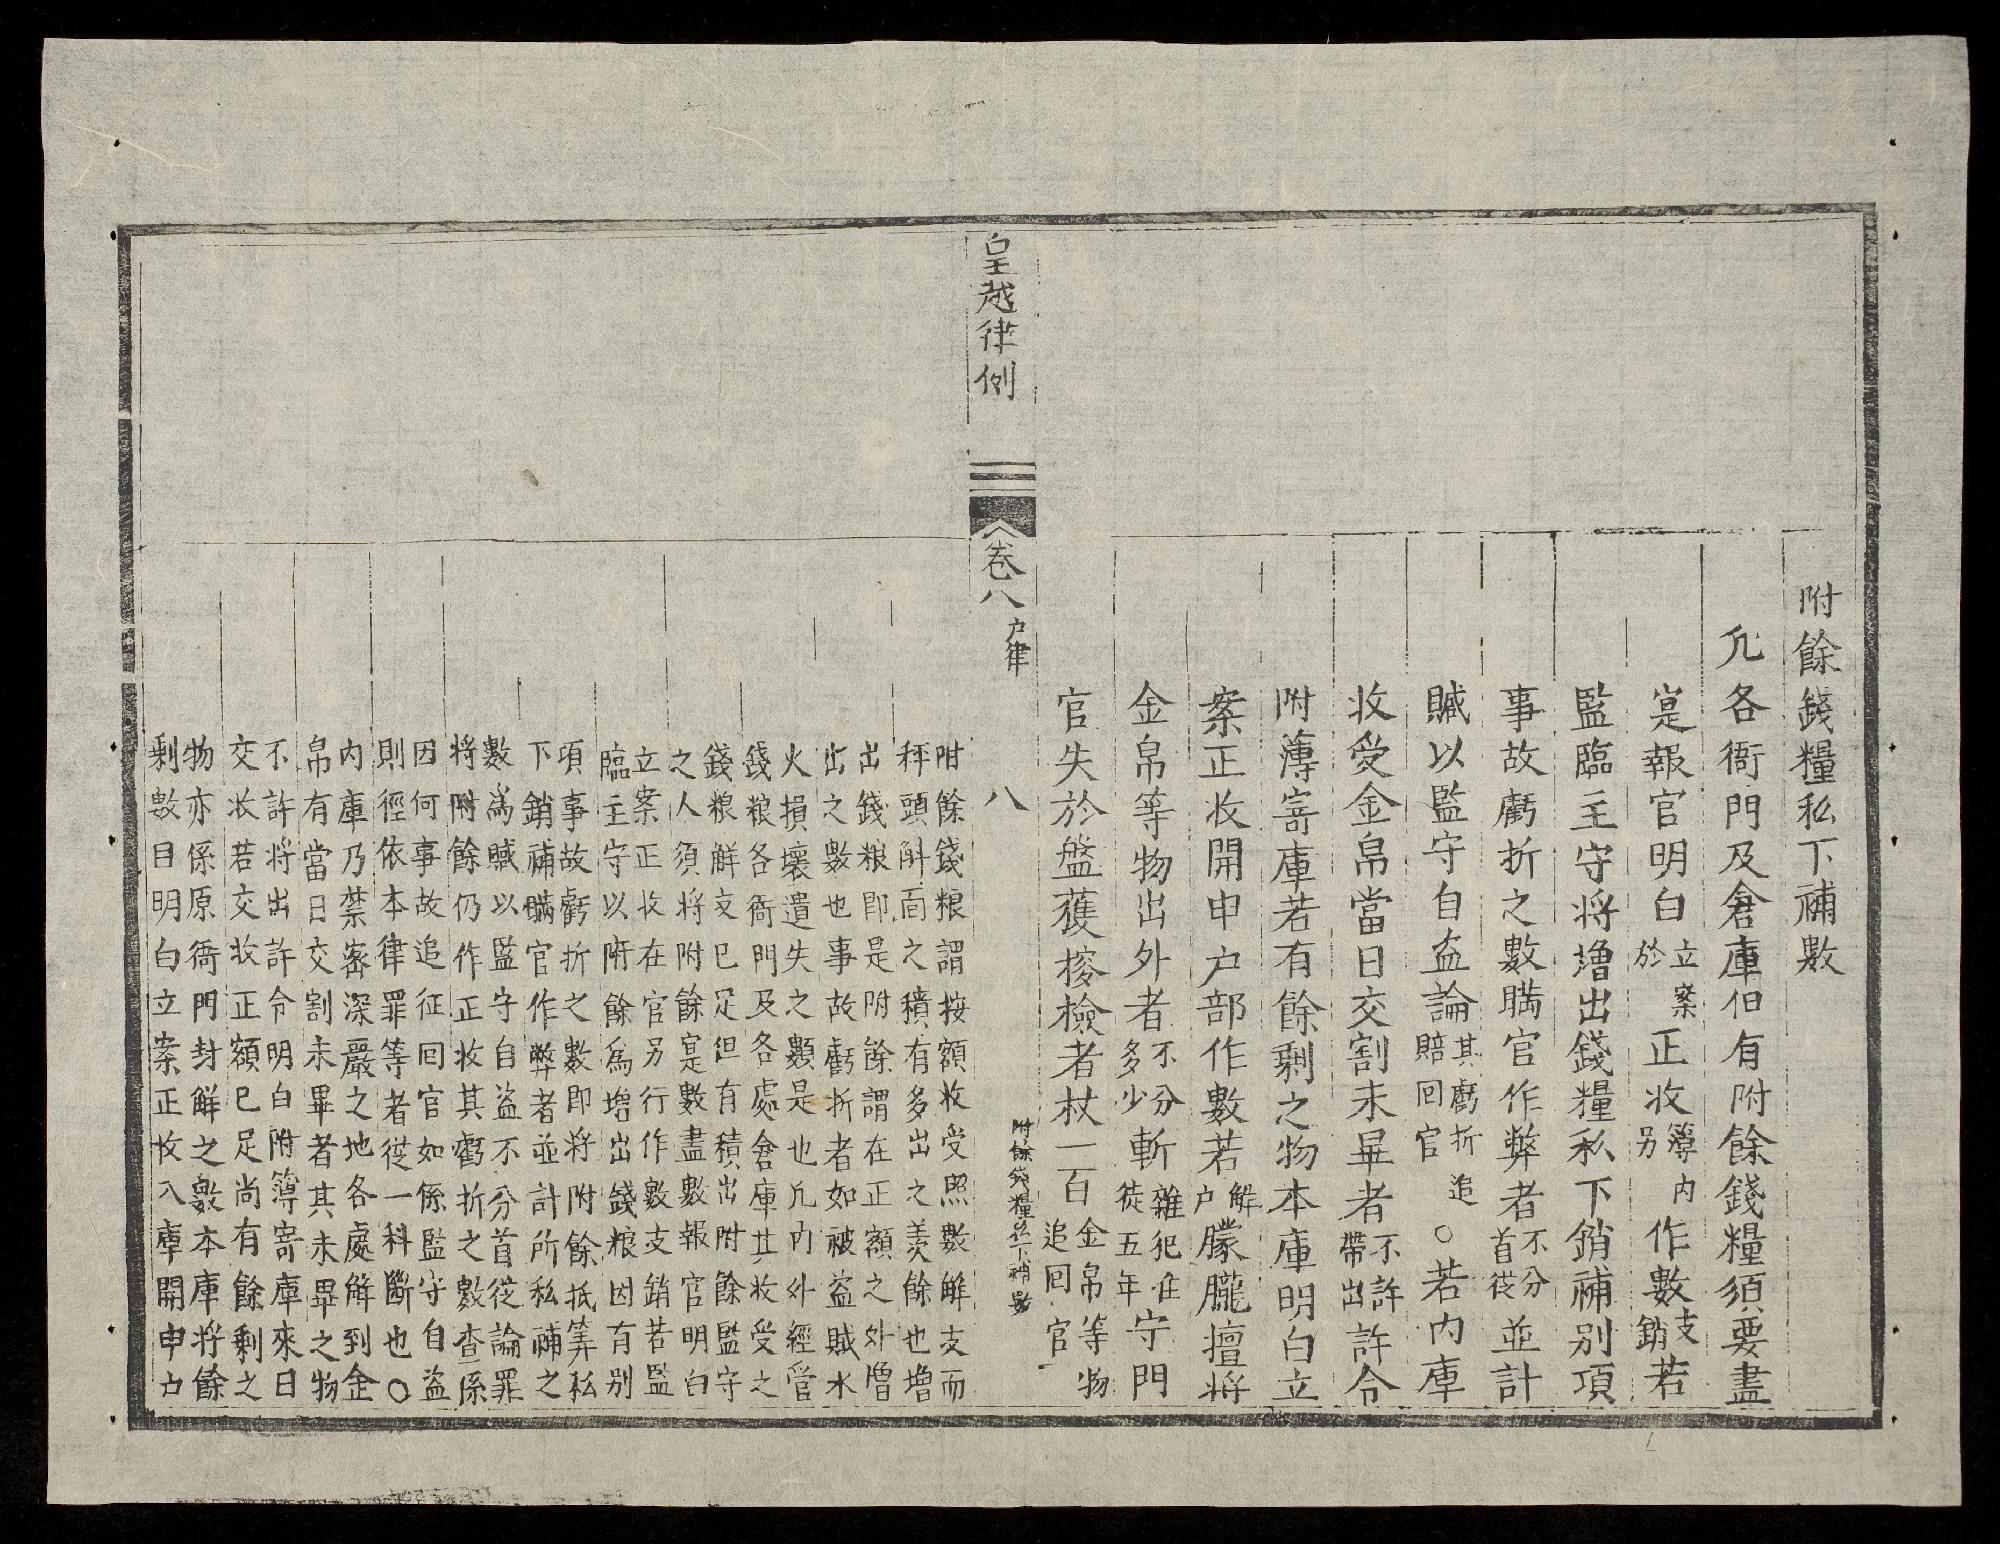 附餘錢糧私下補數
凡各衙門及倉庫但有附餘錢糧須要盡
寔報官明白立案於正收簿內另作數支銷若
監臨主守將增出錢糧私下銷補別項
事故虧折之數瞞官作弊者不分首從並計
贓以監守自盜論其虧折追賠回官○若內庫
收受金帛當日交割未畢者不許帶出許令
附簿寄庫若有餘剩之物本庫明白立
案正收開申户部作數若解户朦朧擅將
金帛等物出外者不分多少斬雜犯准徒五年守門
官失於盤獲搜檢者杖一百金帛等物追回官
皇越律例
卷八
户律
八
附餘錢糧私下補數
附餘錢粮謂按額收受照數觧支而
秤頭斛面之積有多出之羨餘也增
出錢粮即是附餘謂在正額之外增
出之數也事故虧折者如被盗賊水
火損壞遺失之類是也凡內外經管
錢粮各衙門及各處倉庫其收受之
錢粮觧支已足但有積出附餘監守
之人須將附餘寔數盡數報官明白
立案正收在官另行作數支銷若監
臨主守以附餘為增出錢粮因有別
項事故虧折之數即將附餘抵筭私
下銷補瞞官作弊者並計所私補之
數為贓以監守自盗不分首從論罪
將附餘仍作正收其虧折之數查係
因何事故追征回官如係監守自盗
則徑依本律罪等者從一科斷也○
內庫乃禁密深嚴之地各處解到金
帛有當日交割未畢者其未畢之物
不許將出許令明白附簿寄庫來日
交收若交收正額已足尚有餘剩之
物亦係原衙門封觧之數本庫將餘
剩數目明白立案正收入庫開申户